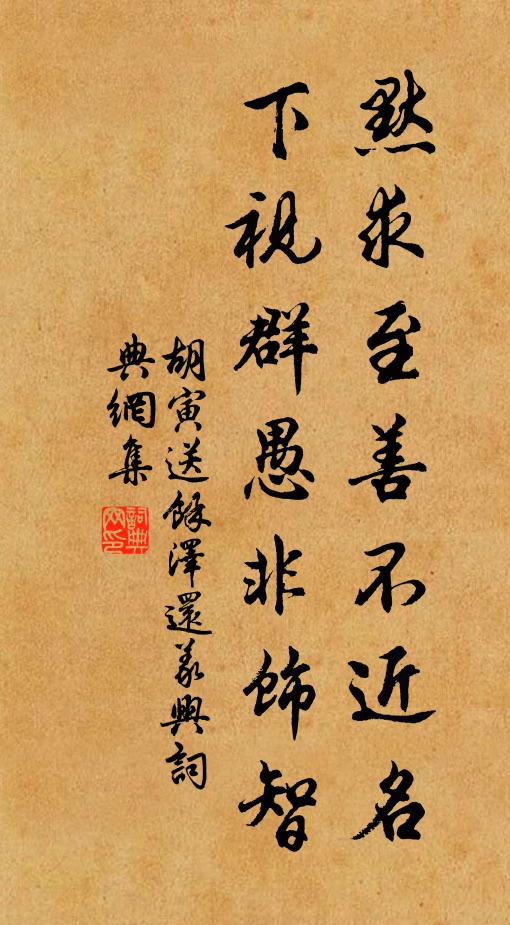 默求至善不近名
下視群愚非飾智
胡寅送餘澤還義興詞
典網集
詞典